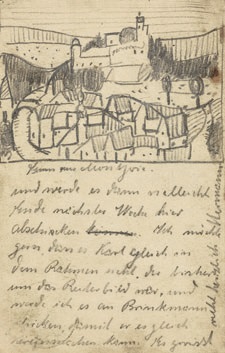 und werde es dann vielleicht
Ende nächster Woche hier
abschicken. Ich möchte
gern dass es Karl gleich in
dem Rahmen sieht, der bisher
um das Reiterbild war, und
werde ich es an Brinkmann
schicken, damit er es gleich
kann. Es grüsst
recht herzlich Hermann